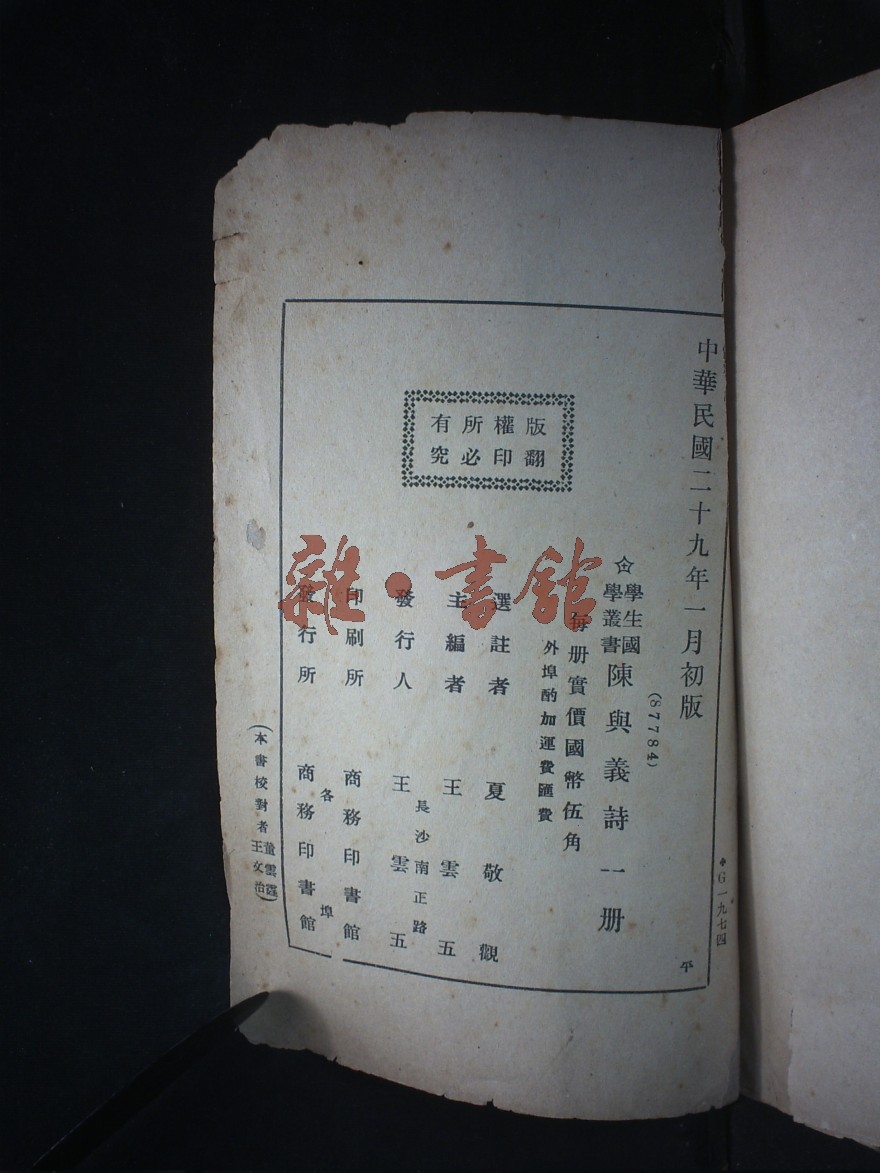 中華民國二十九年一月初版
(87784)
學生國學叢書
陳與義詩一册
每册實價國幣伍角
外埠酌加運費匯費
選註者 夏敬觀
主編者 王雲五
長沙南正路
發行人 王雲五
印刷所 商務印書館
各埠
發行所 商務印書館
版權所有
翻印必究
(本書校對者 王文治)
G一九七四
平
雜·書館